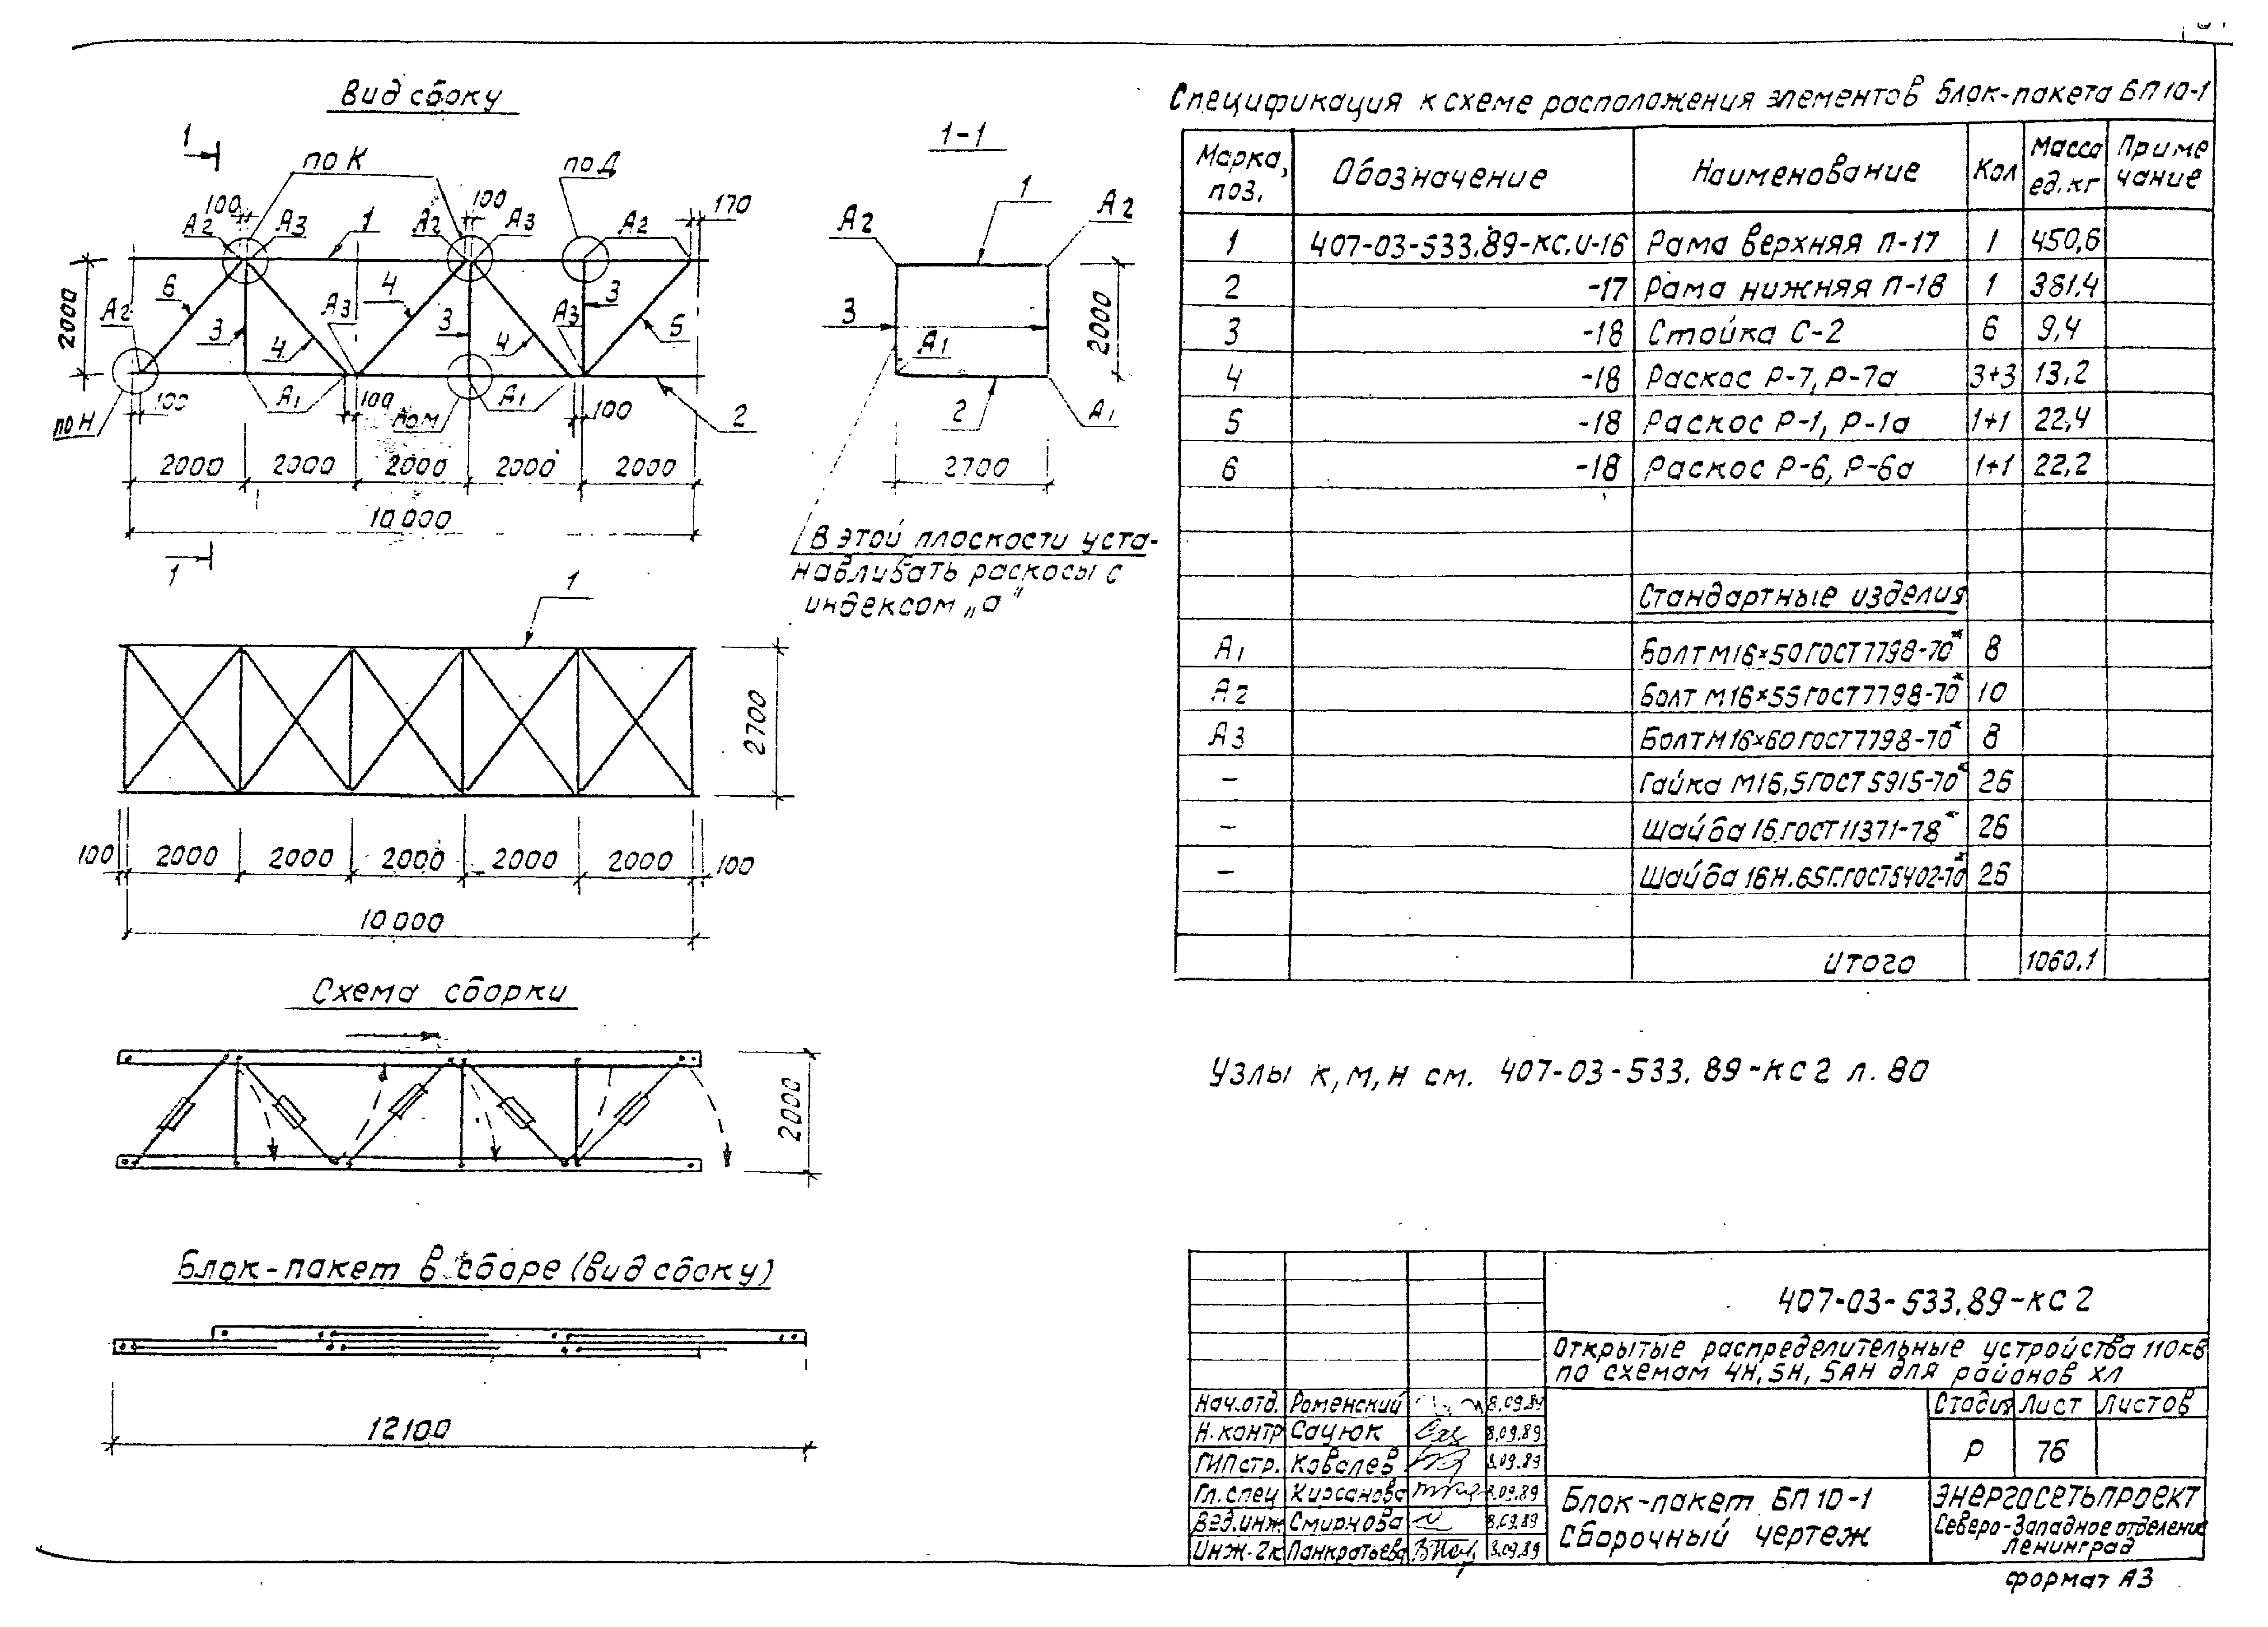 Вид сбоку
1
по К
по Д
100
А2
А3
1
А2
100
А3
А2
170
2000
6
4
3
А2
3
А3
4
3
4
А3
5
100
А1
100
по М
А1
100
2
по Н
2000 2000 2000 2000 2000
10 000
1
1-1
1
А2
А2
3
2000
А1
2
А1
2700
В этой плоскости уста-
навливать раскосы с
индексом „а"
1
2700
100 2000 2000 2000 2000 2000 100
10 000
Схема сборки
2000
Блок-пакет в сборе (вид сбоку)
12100
Спецификация к схеме расположения элементов блок-пакета БП10-1
Марка, поз. Обозначение Наименование Кол Масса ед.кг Приме чание
1 407-03-533.89-КС.И-16 Рама верхняя П-17 1 450,6
2 -17 Рама нижняя П-18 1 381,4
3 -18 Стойка С-2 6 9,4
4 -18 Раскос Р-7, Р-7а 3+3 13,2
5 -18 Раскос Р-1, Р-1а 1+1 22,4
6 -18 Раскос Р-6, Р-6а 1+1 22,2
Стандартные изделия
А1 Болт М16×50 ГОСТ 7798-70* 8
А2 Болт М16×55 ГОСТ 7798-70* 10
А3 Болт М16×60 ГОСТ 7798-70* 8
- Гайка М16,5 ГОСТ 5915-70* 26
- Шайба 16.ГОСТ 11371-78* 26
- Шайба 16Н.65Г.ГОСТ 6402-70* 26
Итого 1060,1
Узлы к, м, н см. 407-03-533.89-КС2 л. 80
407-03-533.89-КС2
Открытые распределительные устройства 110кВ
по схемам 4Н, 5Н, 5АН для районов ХЛ
Нач.отд. Роменский
Н.контр Сацюк 8.09.89
ГИП стр. Ковалев 8.09.89
Гл.спец Кирсанова 8.09.89
Вед.инж Смирнова 8.09.89
Инж-2к Панкратьева 8.09.89
Стадия Лист Листов
Р 76
Блок-пакет БП10-1
Сборочный чертеж
Энергосетьпроект
Северо-Западное отделение
Ленинград
формат А3